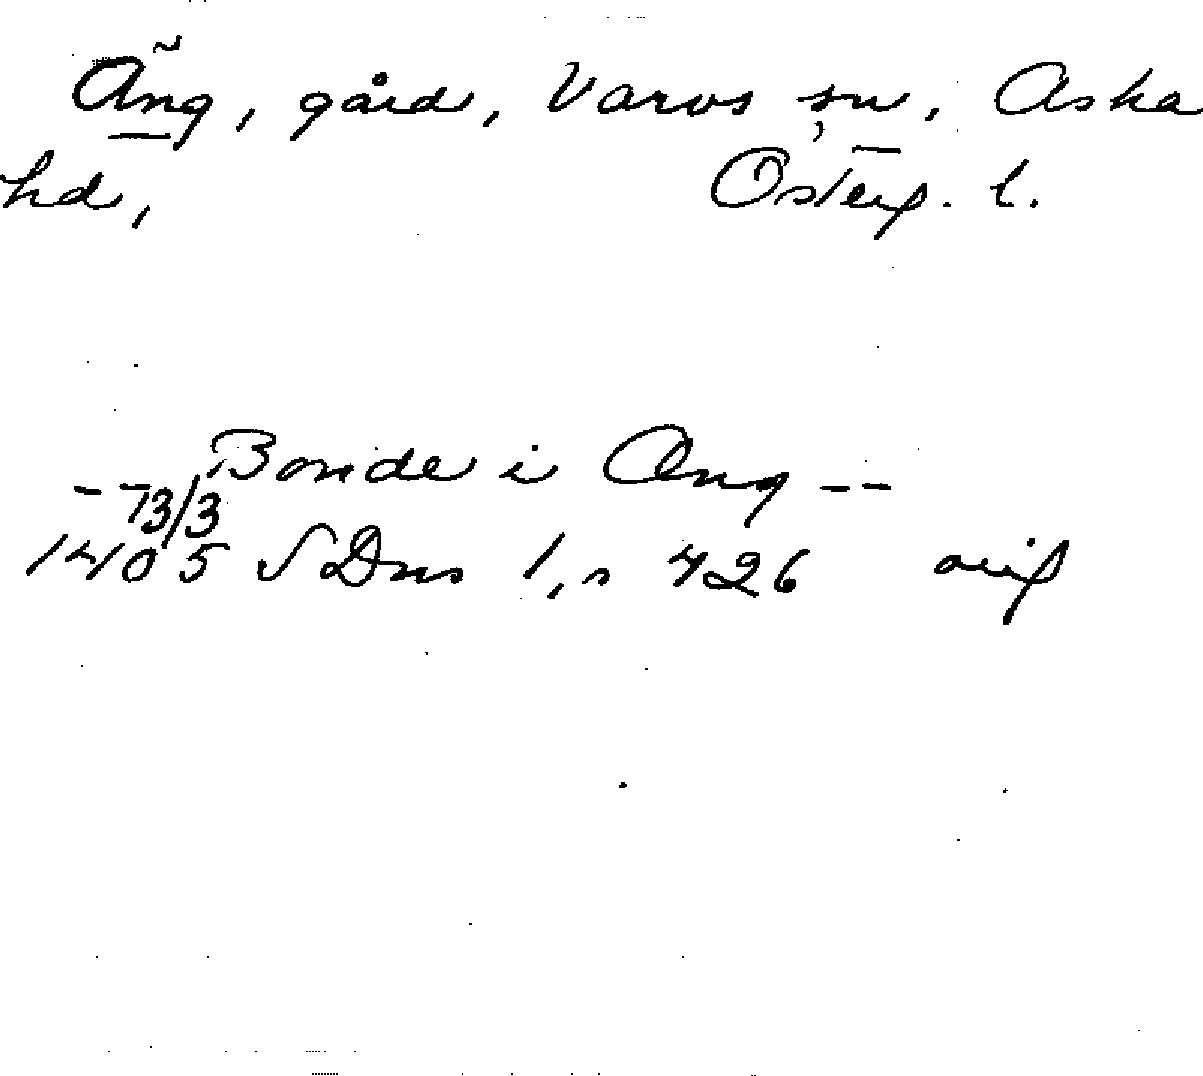 Äng, gård, Varvs sn, Aska
hd, Österg. l.
-- Bonde i Ang --
13/3
1405 SDns 1, s 426 orig